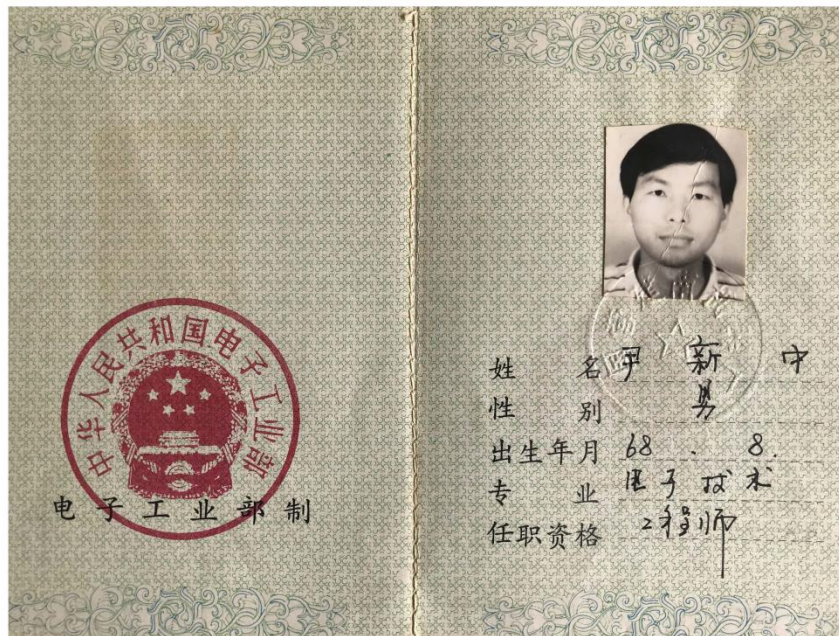 中华人民共和国电子工业部
电子工业部制
姓名 尹新中
性别 男
出生年月 68.8.
专业 电子技术
任职资格 工程师